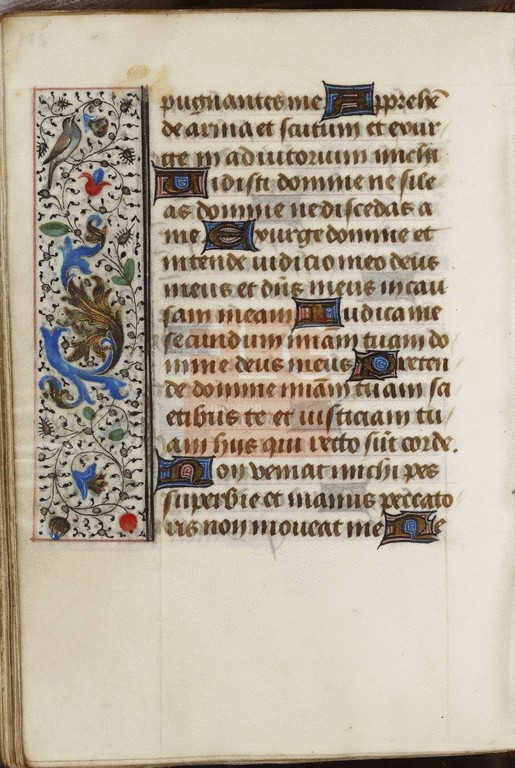 pugnantes me Apprehē
de arma et scutum et exur
ge in adiutorium michi
Uidisti domine ne sile
as domine ne discedas a
me Exurge domine et
intende iudicio meo deus
meus et dn̄s meus in cau
sam meam Iudica me
secundum miām tuam do
mine deus meus Preten
de domine miām tuam sci
entibus te et iusticiam tu
am hiis qui recto sūt corde.
Non veniat michi pes
superbie et manus peccato
ris non moveat me Ne